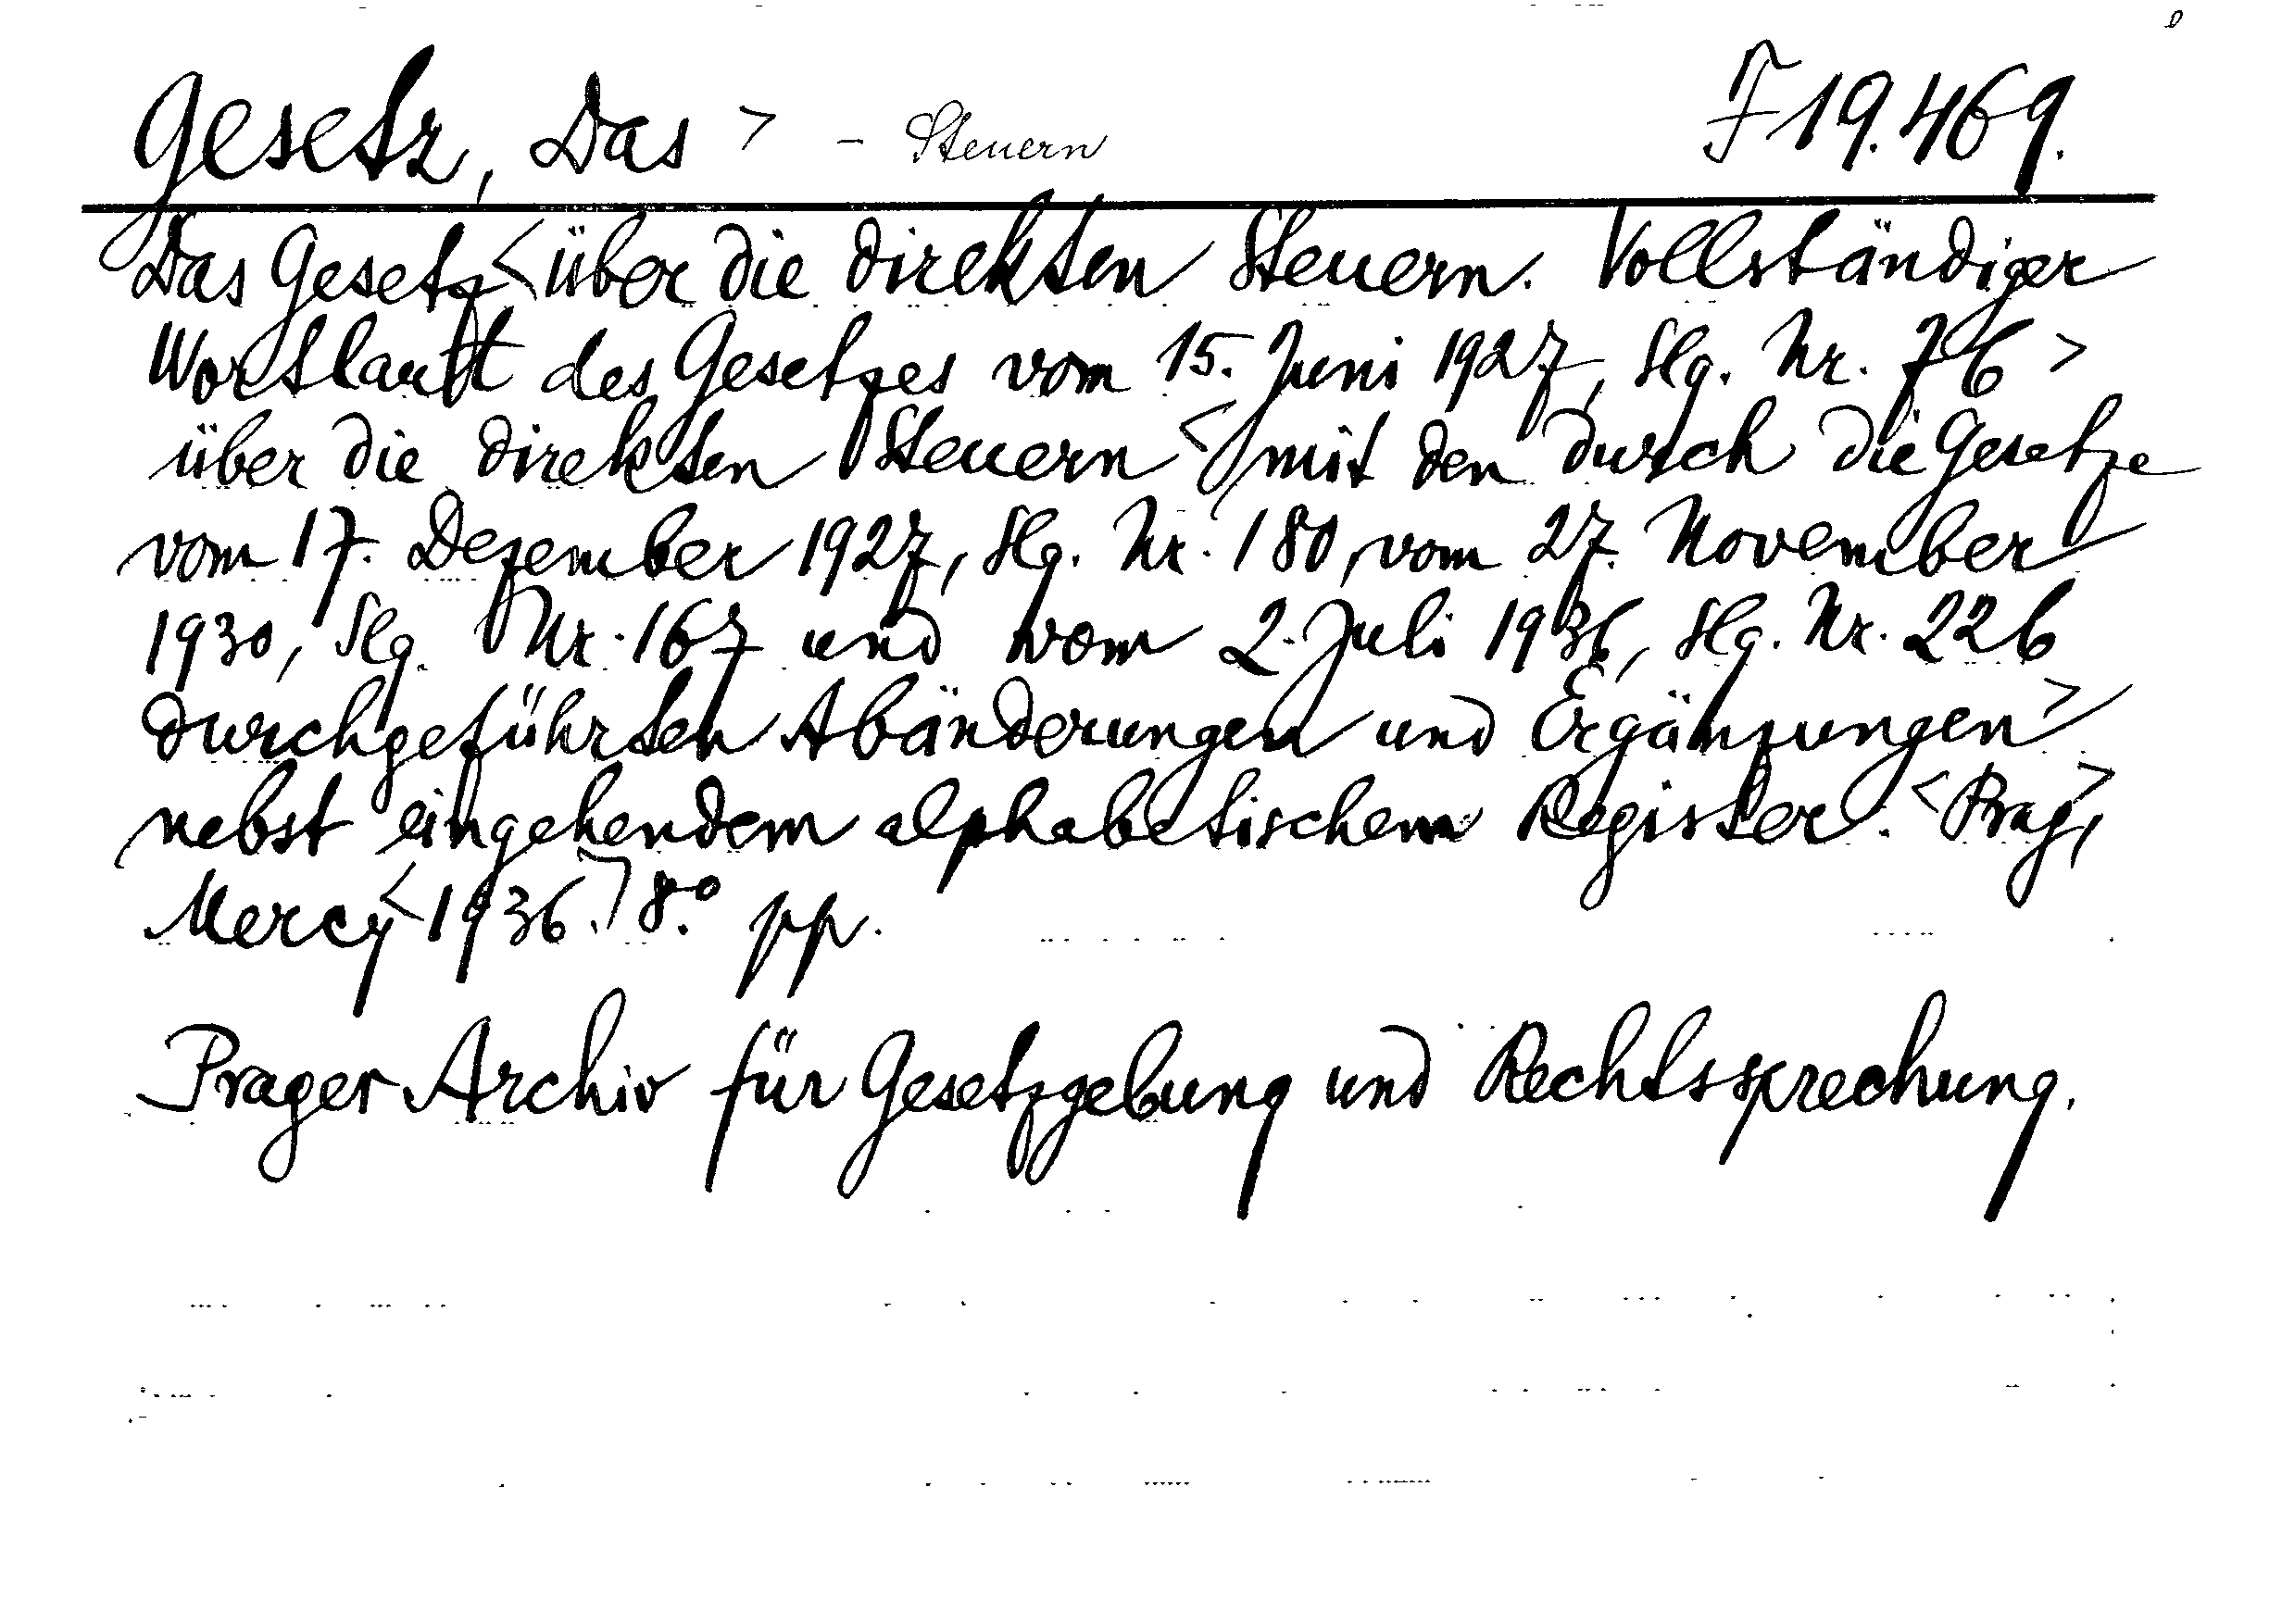 Gesetz, Das > - Steuern F 19.469.
Das Gesetz < über die direkten Steuern. Vollständiger
Wortlautt des Gesetzes vom 15. Juni 1927, Slg. Nr. 76 >
über die direkten Steuern < mit den durch die Gesetze
vom 17. Dezember 1927, Slg. Nr. 180, vom 27. November
1930, Slg. Nr. 167 und vom 2. Juli 1936, Slg. Nr. 226
durchgeführten Abänderungen und Ergänzungen >
nebst eingehendem alphabetischem Register. < Prag, >
Mercy < 1936. ] 8.° pp.
Prager Archiv für Gesetzgebung und Rechtssprechung.